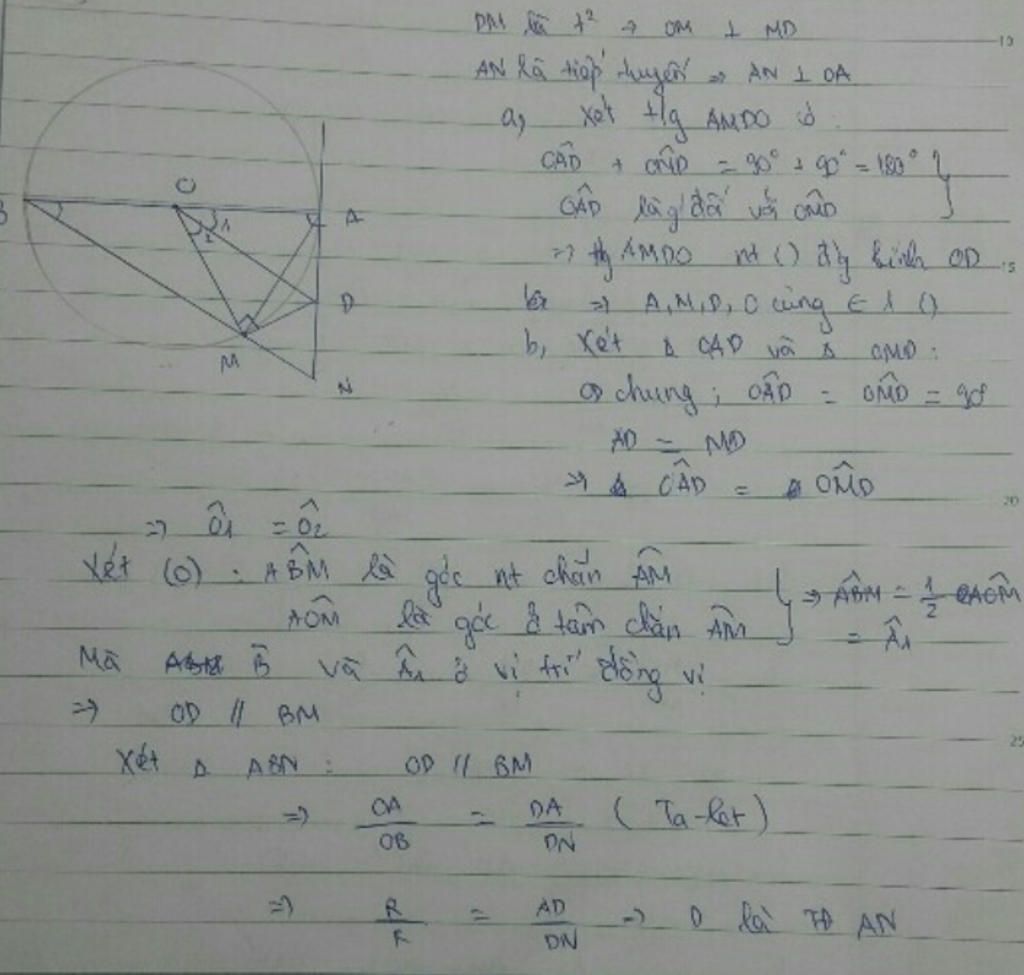 DM là t² → OM ⊥ MD
AN là tiếp tuyến => AN ⊥ OA
a, Xét t/g AMDO có:
OÂD + OM̂D = 90° + 90° = 180°
OÂD là góc đối với OM̂D
=> t/g AMDO nt () đ/g kính OD
=> A, M, D, O cùng ∈ 1 ()
b, Xét Δ OAD và Δ OMD:
OD chung; OÂD = OM̂D = 90°
AD = MD
=> Δ OÂD = Δ OM̂D
=> Ô1 = Ô2
Xét (O): AB̂M là góc nt chắn AM
AÔM là góc ở tâm chắn AM
=> AB̂M = 1/2 AÔM
= Â1
Mà B̂ và Â1 ở vị trí đồng vị
=> OD // BM
Xét Δ ABN: OD // BM
=> OA/OB = DA/DN (Ta-let)
=> R/R = AD/DN => D là TĐ AN
O
B
1
2
A
D
M
N
15
20
25